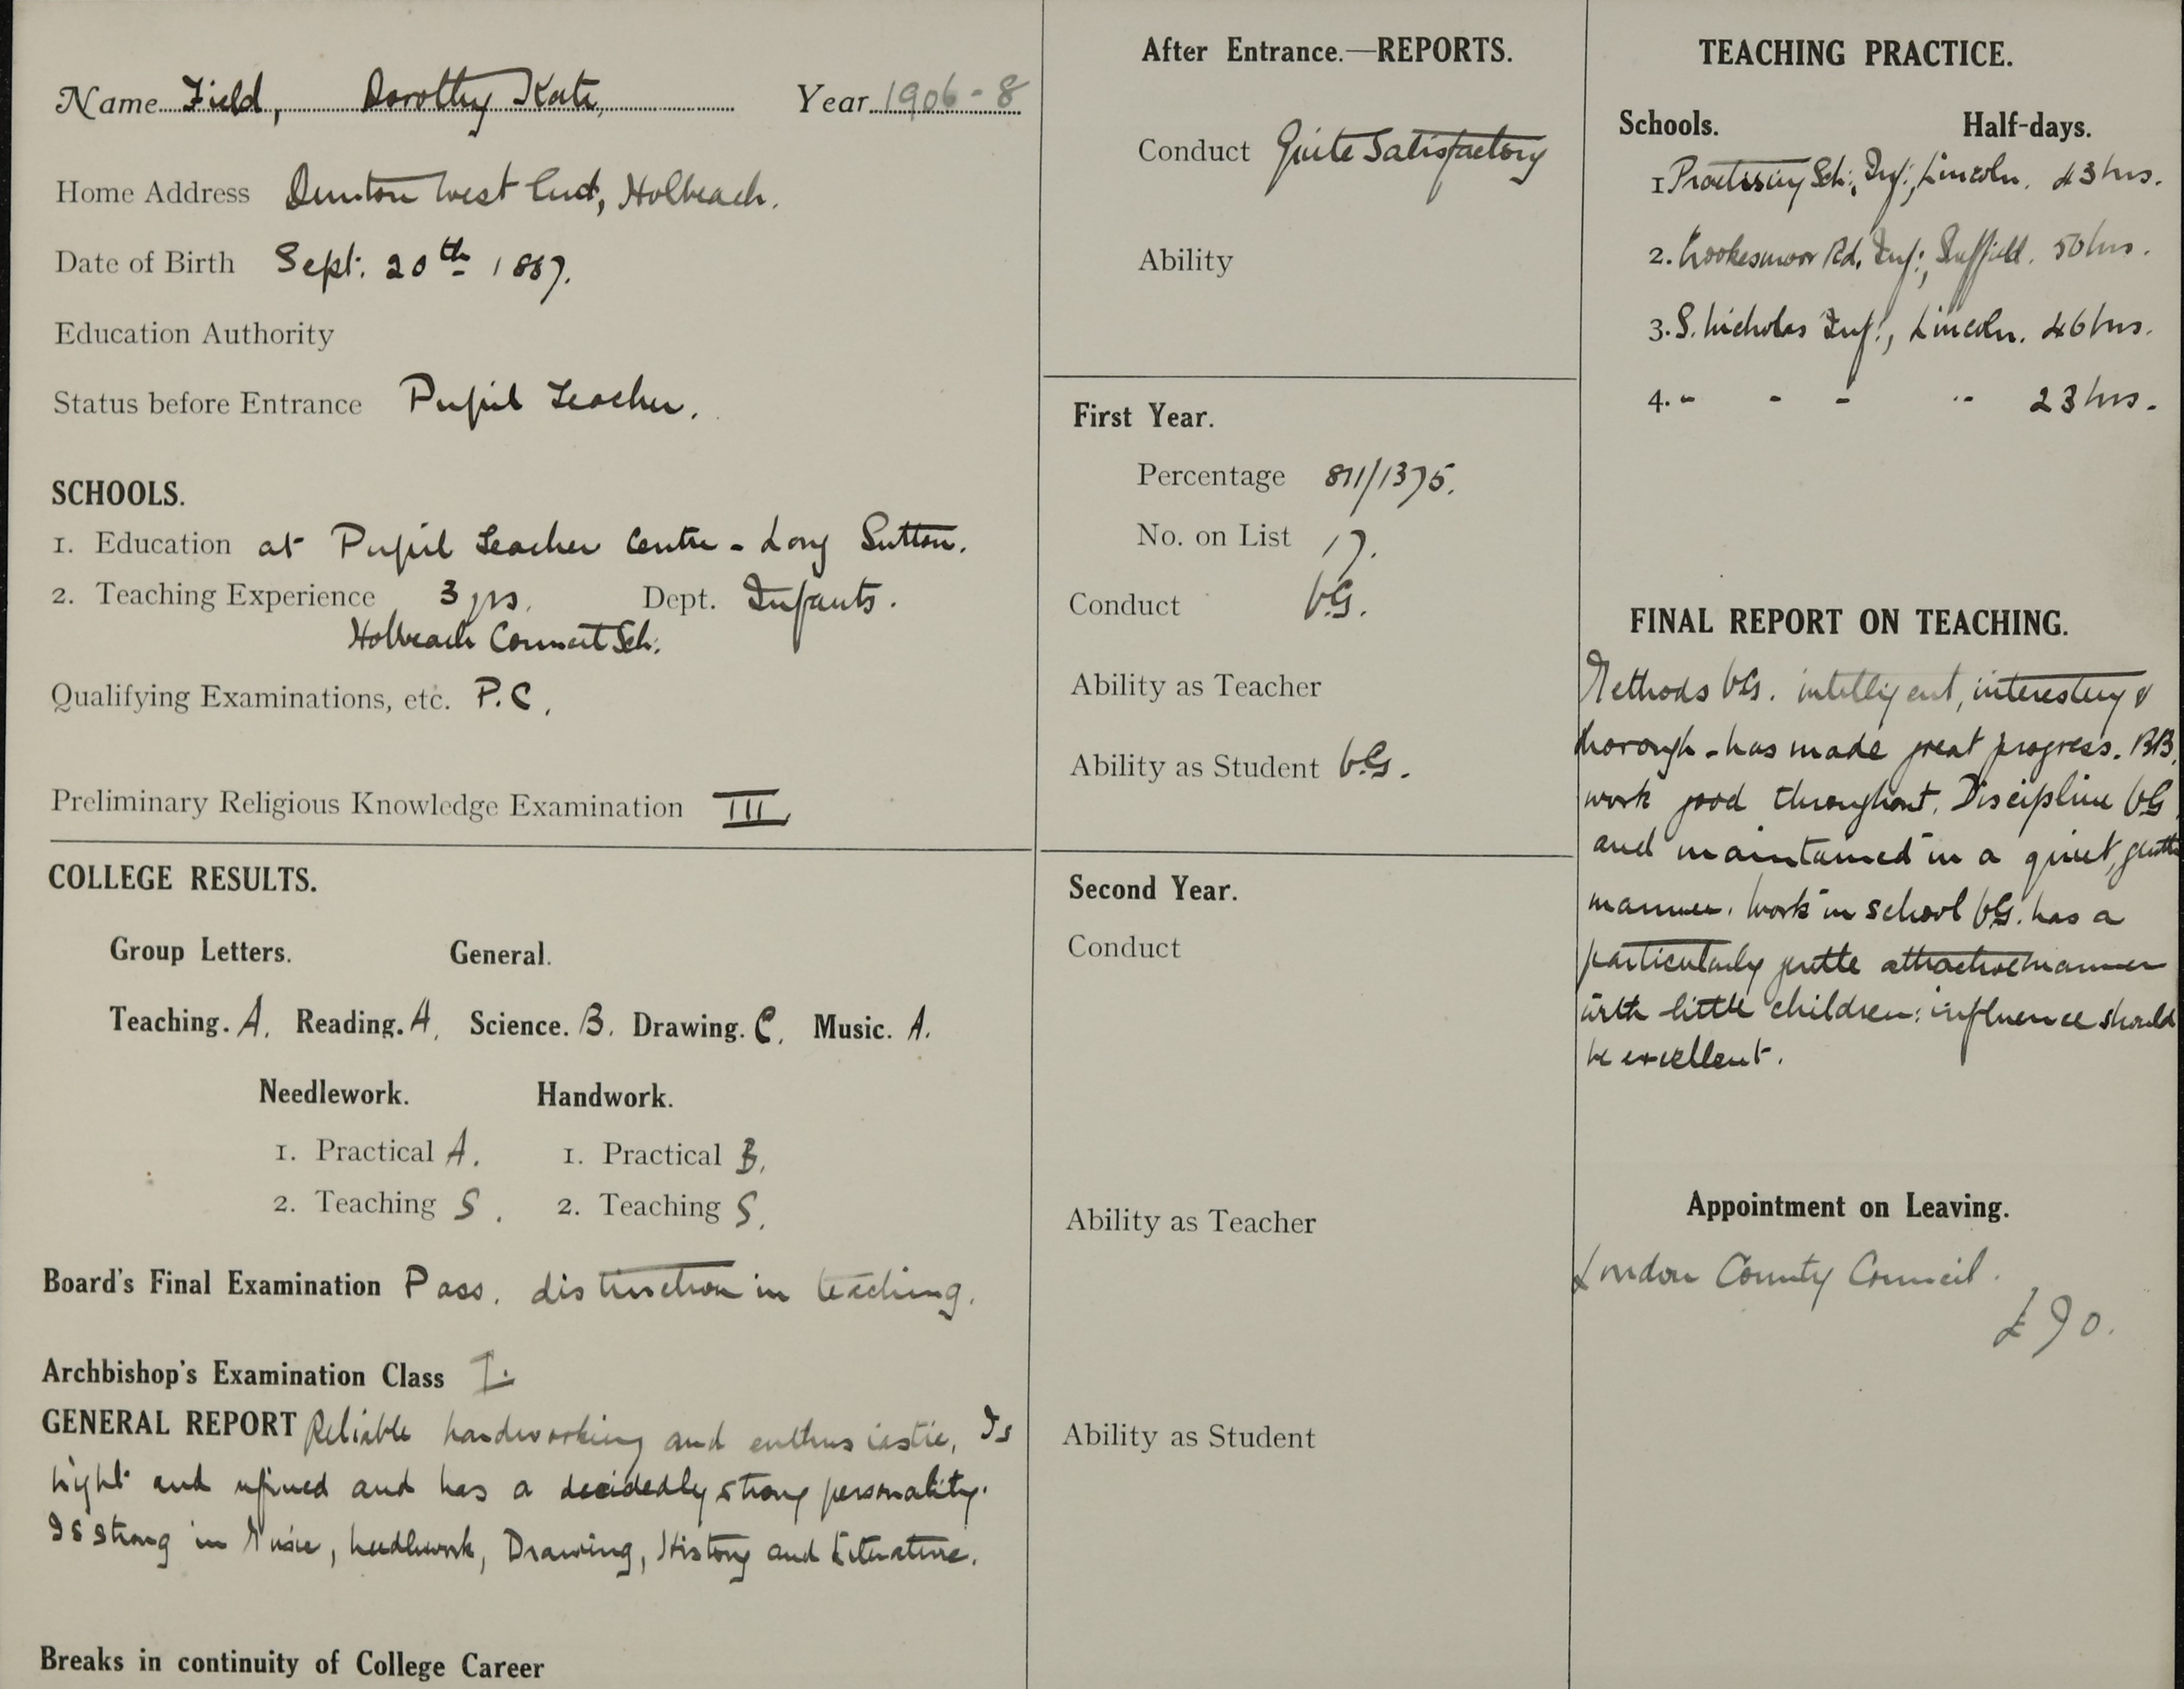 Name Field, Dorothy Kate, Year 1906-8
Home Address West End, Holbeach.
Date of Birth Sept. 20th 1887.
Education Authority
Status before Entrance Pupil Teacher.
SCHOOLS.
1. Education at Pupil Teacher Centre - Long Sutton.
2. Teaching Experience 3 yrs. Dept. Infants.
Holbeach Council Sch:
Qualifying Examinations, etc. P.C.
Preliminary Religious Knowledge Examination III
COLLEGE RESULTS.
Group Letters. General.
Teaching. A. Reading. A. Science. B. Drawing. C. Music. A.
Needlework. Handwork.
1. Practical A. 1. Practical B.
2. Teaching S. 2. Teaching S.
Board's Final Examination Pass. distinction in teaching.
Archbishop's Examination Class I.
GENERAL REPORT Reliable hardworking and enthusiastic, Is
bright and refined and has a decidedly strong personality.
Is strong in Music, Needlework, Drawing, History and Literature.
Breaks in continuity of College Career
After Entrance.—REPORTS.
Conduct Quite Satisfactory
Ability
First Year.
Percentage 811/1375.
No. on List 17.
Conduct V.G.
Ability as Teacher
Ability as Student V.G.
Second Year.
Conduct
Ability as Teacher
Ability as Student
TEACHING PRACTICE.
Schools. Half-days.
1 Practising Sch:, Inf:, Lincoln. 43 hrs.
2. Crookesmoor Rd. Inf:, Sheffield. 50 hrs.
3. S. Nicholas Inf:, Lincoln. 46 hrs.
4. - - - - 23 hrs.
FINAL REPORT ON TEACHING.
Methods V.G. intelligent, interesting &
thorough - has made great progress. BB.
work good throughout. Discipline V.G.
and maintained in a quiet, gentle
manner. Work in school V.G. has a
particularly gentle attractive manner
with little children: influence should
be excellent.
Appointment on Leaving.
London County Council.
£90.